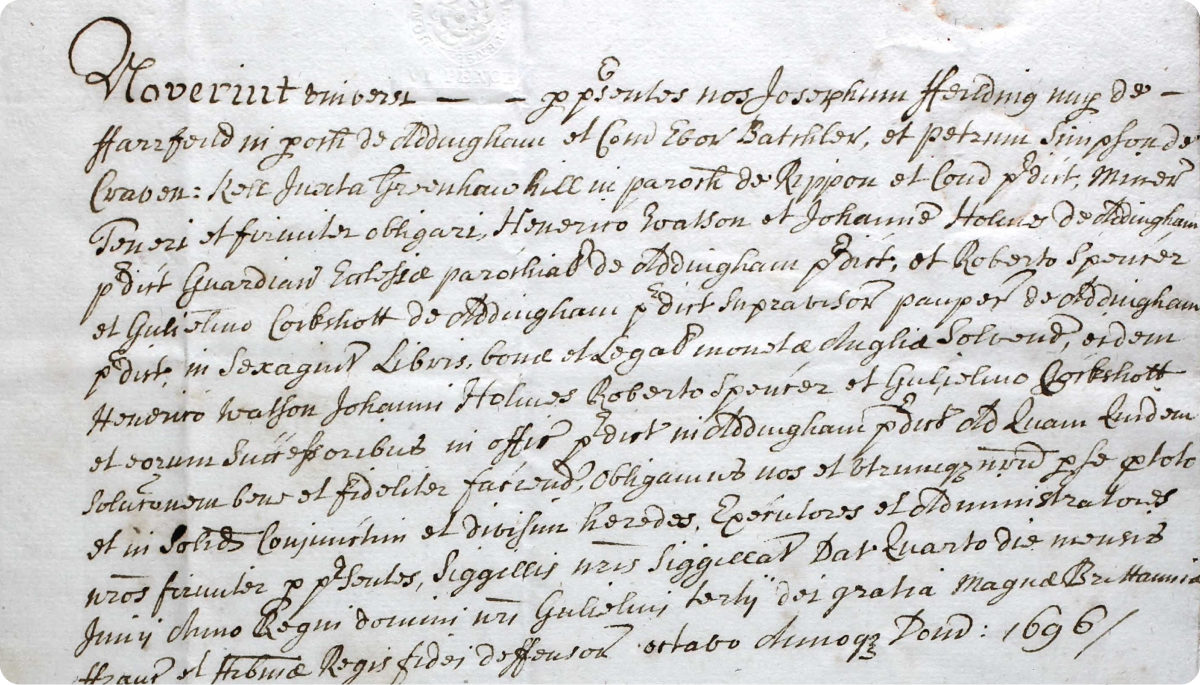 VI PENCE
Noverint universi — — p pͬsentes nos Josephum Hendinig nup de —
Farrfeild in poch de Addingham et Com Ebor Batchler, et petrum Simpson de
Craven: Kell Juxta Greenhaw hill in paroch de Rippon et Com pͬdict, Miner
Teneri et firmiter obligari, Henerico Watson et Johanne Holme de Addingham
pͬdict Guardian Ecclesiæ parochial de Addingham pͬdict, et Roberto Spencer
et Gulielmo Cockshott de Addingham pͬdict Supravisor pauper de Addingham
pͬdict, in Sexagint Libris, bonæ et Legal monetæ Angliæ Solvend, eisdem
Henerico Watson Johanni Holmes Roberto Spencer et Gulielmo Cockshott
et eorum Successoribus in offic pͬdict in Addingham pͬdict Ad Quam Quidem
Soluconem bene et fideliter faciend, Obligamus nos et utrumqꝫ nrm p se p toto
et in Solid Conjunctim et divisim heredes, Executores et Administratores
nros firmiter p pͬsentes, Siggillis nris Siggillat Dat Quarto die mensis
Junij Anno Regni domini nri Gulielmi tertij dei gratia Magnæ Brittannia
ffranc et Hibniæ Regis fidei deffensor octavo Annoqꝫ Dom: 1696/